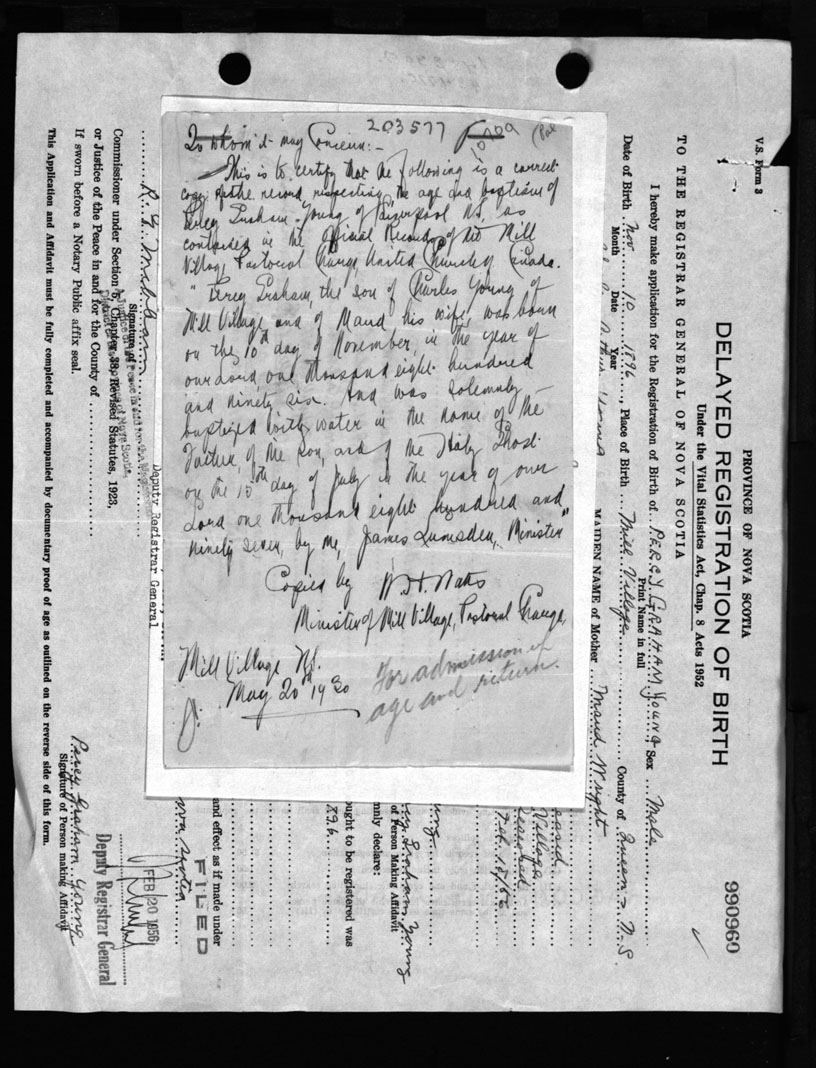 203577
10709
To whom it may Concern:-
This is to certify that the following is a correct
copy of the record, respecting the age and baptism of
Percy Graham Young of Liverpool N.S, as
contained in the Official Records of the Mill
Village Pastoral Charge, United Church of Canada.
" Percy Graham, the son of Charles Young of
Mill Village and of Maud his wife, was born
on the 10th day of November, in the year of
our Lord, one thousand eight hundred
and ninety six. And was solemnly
baptized with water in the name of the
Father, of the Son, and of the Holy Ghost
on the 15th day of July in the year of our
Lord one thousand eight hundred and
ninety seven, by me, James Lumsden, Minister"
Copied by W.H. Watts
Minister of Mill Village, Pastoral Charge,
Mill Village N.S.
May 20th 1930
For admission of
age and return.
V.S. Form 3
990960
PROVINCE OF NOVA SCOTIA
DELAYED REGISTRATION OF BIRTH
Under the Vital Statistics Act, Chap. 8 Acts 1952
TO THE REGISTRAR GENERAL OF NOVA SCOTIA
I hereby make application for the Registration of Birth of PERCY GRAHAM Young Sex Male
Print Name in full
Date of Birth Nov 10 1896, Place of Birth Mill Village County of Queens N.S.
Month Date Year
MAIDEN NAME of Mother Maud Wright
Village
Feb. 15/56
Graham Young
of Person Making Affidavit
mnly declare:
ought to be registered was
896
and effect as if made under
FILED
Scotia
Deputy Registrar General
FEB 20 1956
Deputy Registrar General
Signature of
Commissioner under Section 6, Chapter 38, Revised Statutes, 1923,
or Justice of the Peace in and for the County of
If sworn before a Notary Public affix seal.
Percy Graham Young
Signature of Person making Affidavit
This Application and Affidavit must be fully completed and accompanied by documentary proof of age as outlined on the reverse side of this form.